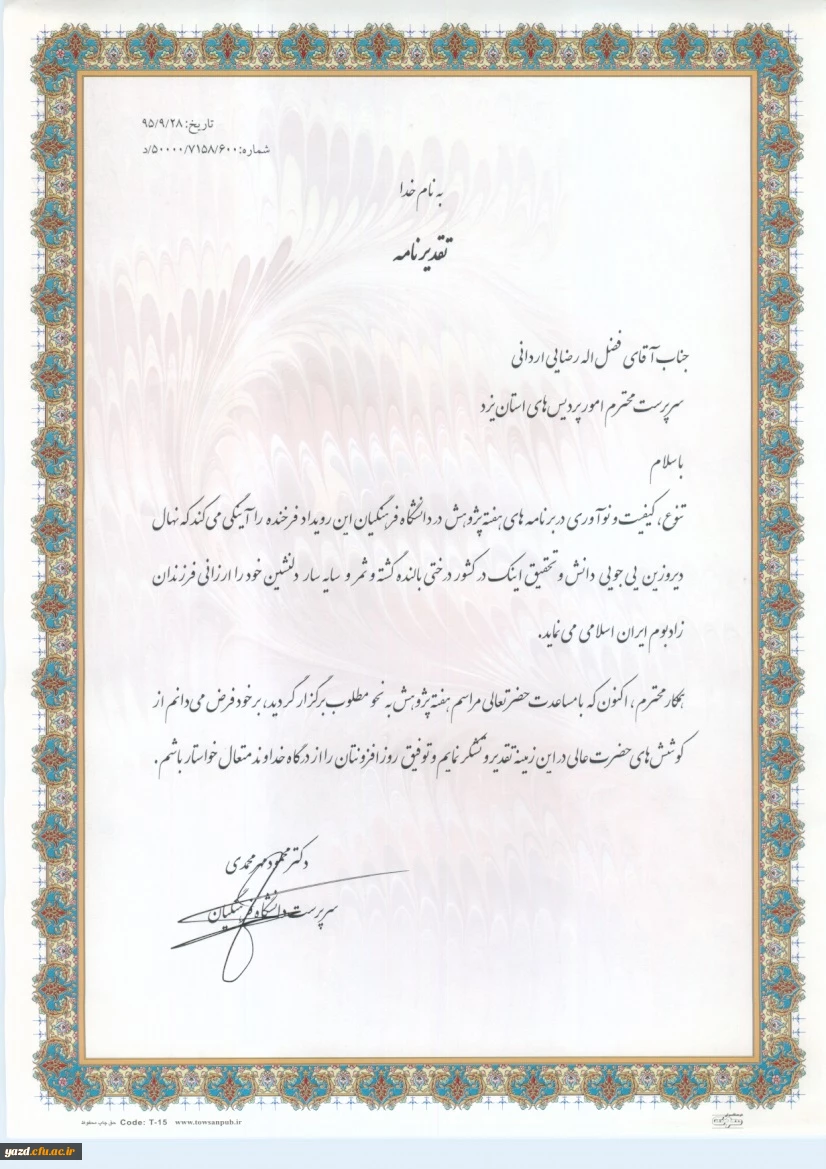 تاریخ: ۹۵/۹/۲۸
شماره: ۵۰۰۰۰/۷۱۵۸/۶۰۰/د
به نام خدا
تقدیرنامه
جناب آقای فضل اله رضایی اردانی
سرپرست محترم امور پردیس های استان یزد
با سلام
تنوع، کیفیت و نوآوری در برنامه های هفته پژوهش در دانشگاه فرهنگیان این رویداد فرخنده را آیینگی می کند که نهال
دیروزین پی جویی دانش و تحقیق اینک در کشور درختی بالنده گشته و ثمر و سایه سار دلنشین خود را ارزانی فرزندان
زادبوم ایران اسلامی می نماید.
همکار محترم، اکنون که با مساعدت حضرتعالی مراسم هفته پژوهش به نحو مطلوب برگزار گردید، بر خود فرض می دانم از
کوشش های حضرت عالی در این زمینه تقدیر و تشکر نمایم و توفیق روز افزونتان را از درگاه خداوند متعال خواستار باشم.
دکتر محمود مهرمحمدی
سرپرست دانشگاه فرهنگیان
حق چاپ محفوظ Code: T-15 www.towsanpub.ir
yazd.cfu.ac.ir